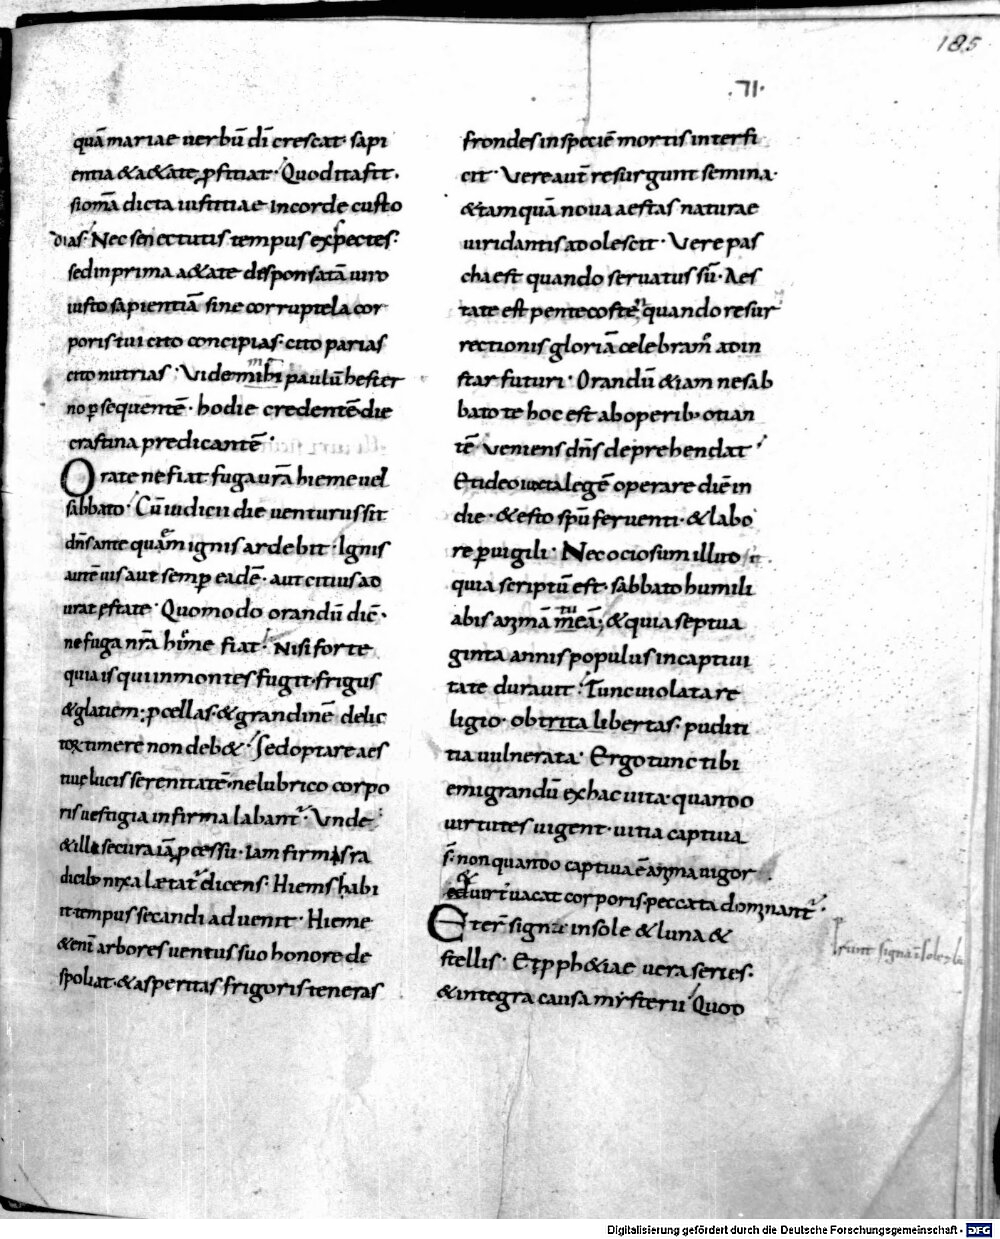 185
.VI.
quā mariae uerbū dī crescat· sapi
entia &a&ate pficiat· Quod ita fit·
si oma dicta iustitiae incorde custo
dias· Nec senectutis tempus expectes·
sedinprima a&ate desponsatā uiro
iusto sapientiā sine corruptela cor
poris tui cito concipias· cito parias
cito nutrias· Vide mihi paulū hester
no psequentē· hodie credentē die
crastina predicantē·
Orate nefiat fuga urā hieme uel
sabbato· Cū iudicii die uenturus sit
dn̄s ante quā ignis ardebit· Ignis
autē uis aut semp eadē· aut citius ad
urat ęstate· Quomodo orandū dic̄·
ne fuga nrā hieme fiat· Nisi forte
quia is qui inmontes fugit· frigus
&glatiem· pcellas·&grandinē delic
tox timere non deb&· Sed optare aes
tiuę lucis serenitatē· ne lubrico corpo
ris uestigia infirma labant̄· Vnde
&illa secura iā pcessu· iam firmis ra
dicib; nixa lætat̄ dicens· Hiems habi
it tempus secandi aduenit· Hieme
&enī arbores uentus suo honore de
spoliat·&asperitas frigoris teneras
frondes inspeciē mortis interfi
cit· Vere aut̄ resurgunt semina·
&tamquā noua aestas naturae
uiridantis adolescit· Vere pas
cha est quando seruatus sū· Aes
tate est pentecoste quando resur
rectionis gloriā celebram̄ adin
star futuri· Orandū &iam ne sab
bato te hoc est ab operib; otian
tē ueniens dn̄s deprehendat·
Et ideo iuxta legē operare diē in
die·&esto spū feruenti·&labo
re puigili· Nec ociosum illud
quia scriptū est· sabbato humili
abis anīmā tuā·&quia septua
ginta annis populus incaptiui
tate durauit· Tunc uiolata re
ligio· obtrita libertas· puditi
tia uulnerata· Ergo tunc tibi
emigrandū ex hac uita· quando
uirtutes uigent· uitia captiua
s̄· non quando captiua ē animǎ uigor
uirt̄ uacat corporis peccata dominant̄·
Eter̄ signa insole &luna &
stellis· Et pph&iae uera series·
&integra causa mysterii Quod
Erunt signa ī sole & lu
Digitalisierung gefördert durch die Deutsche Forschungsgemeinschaft - DFG